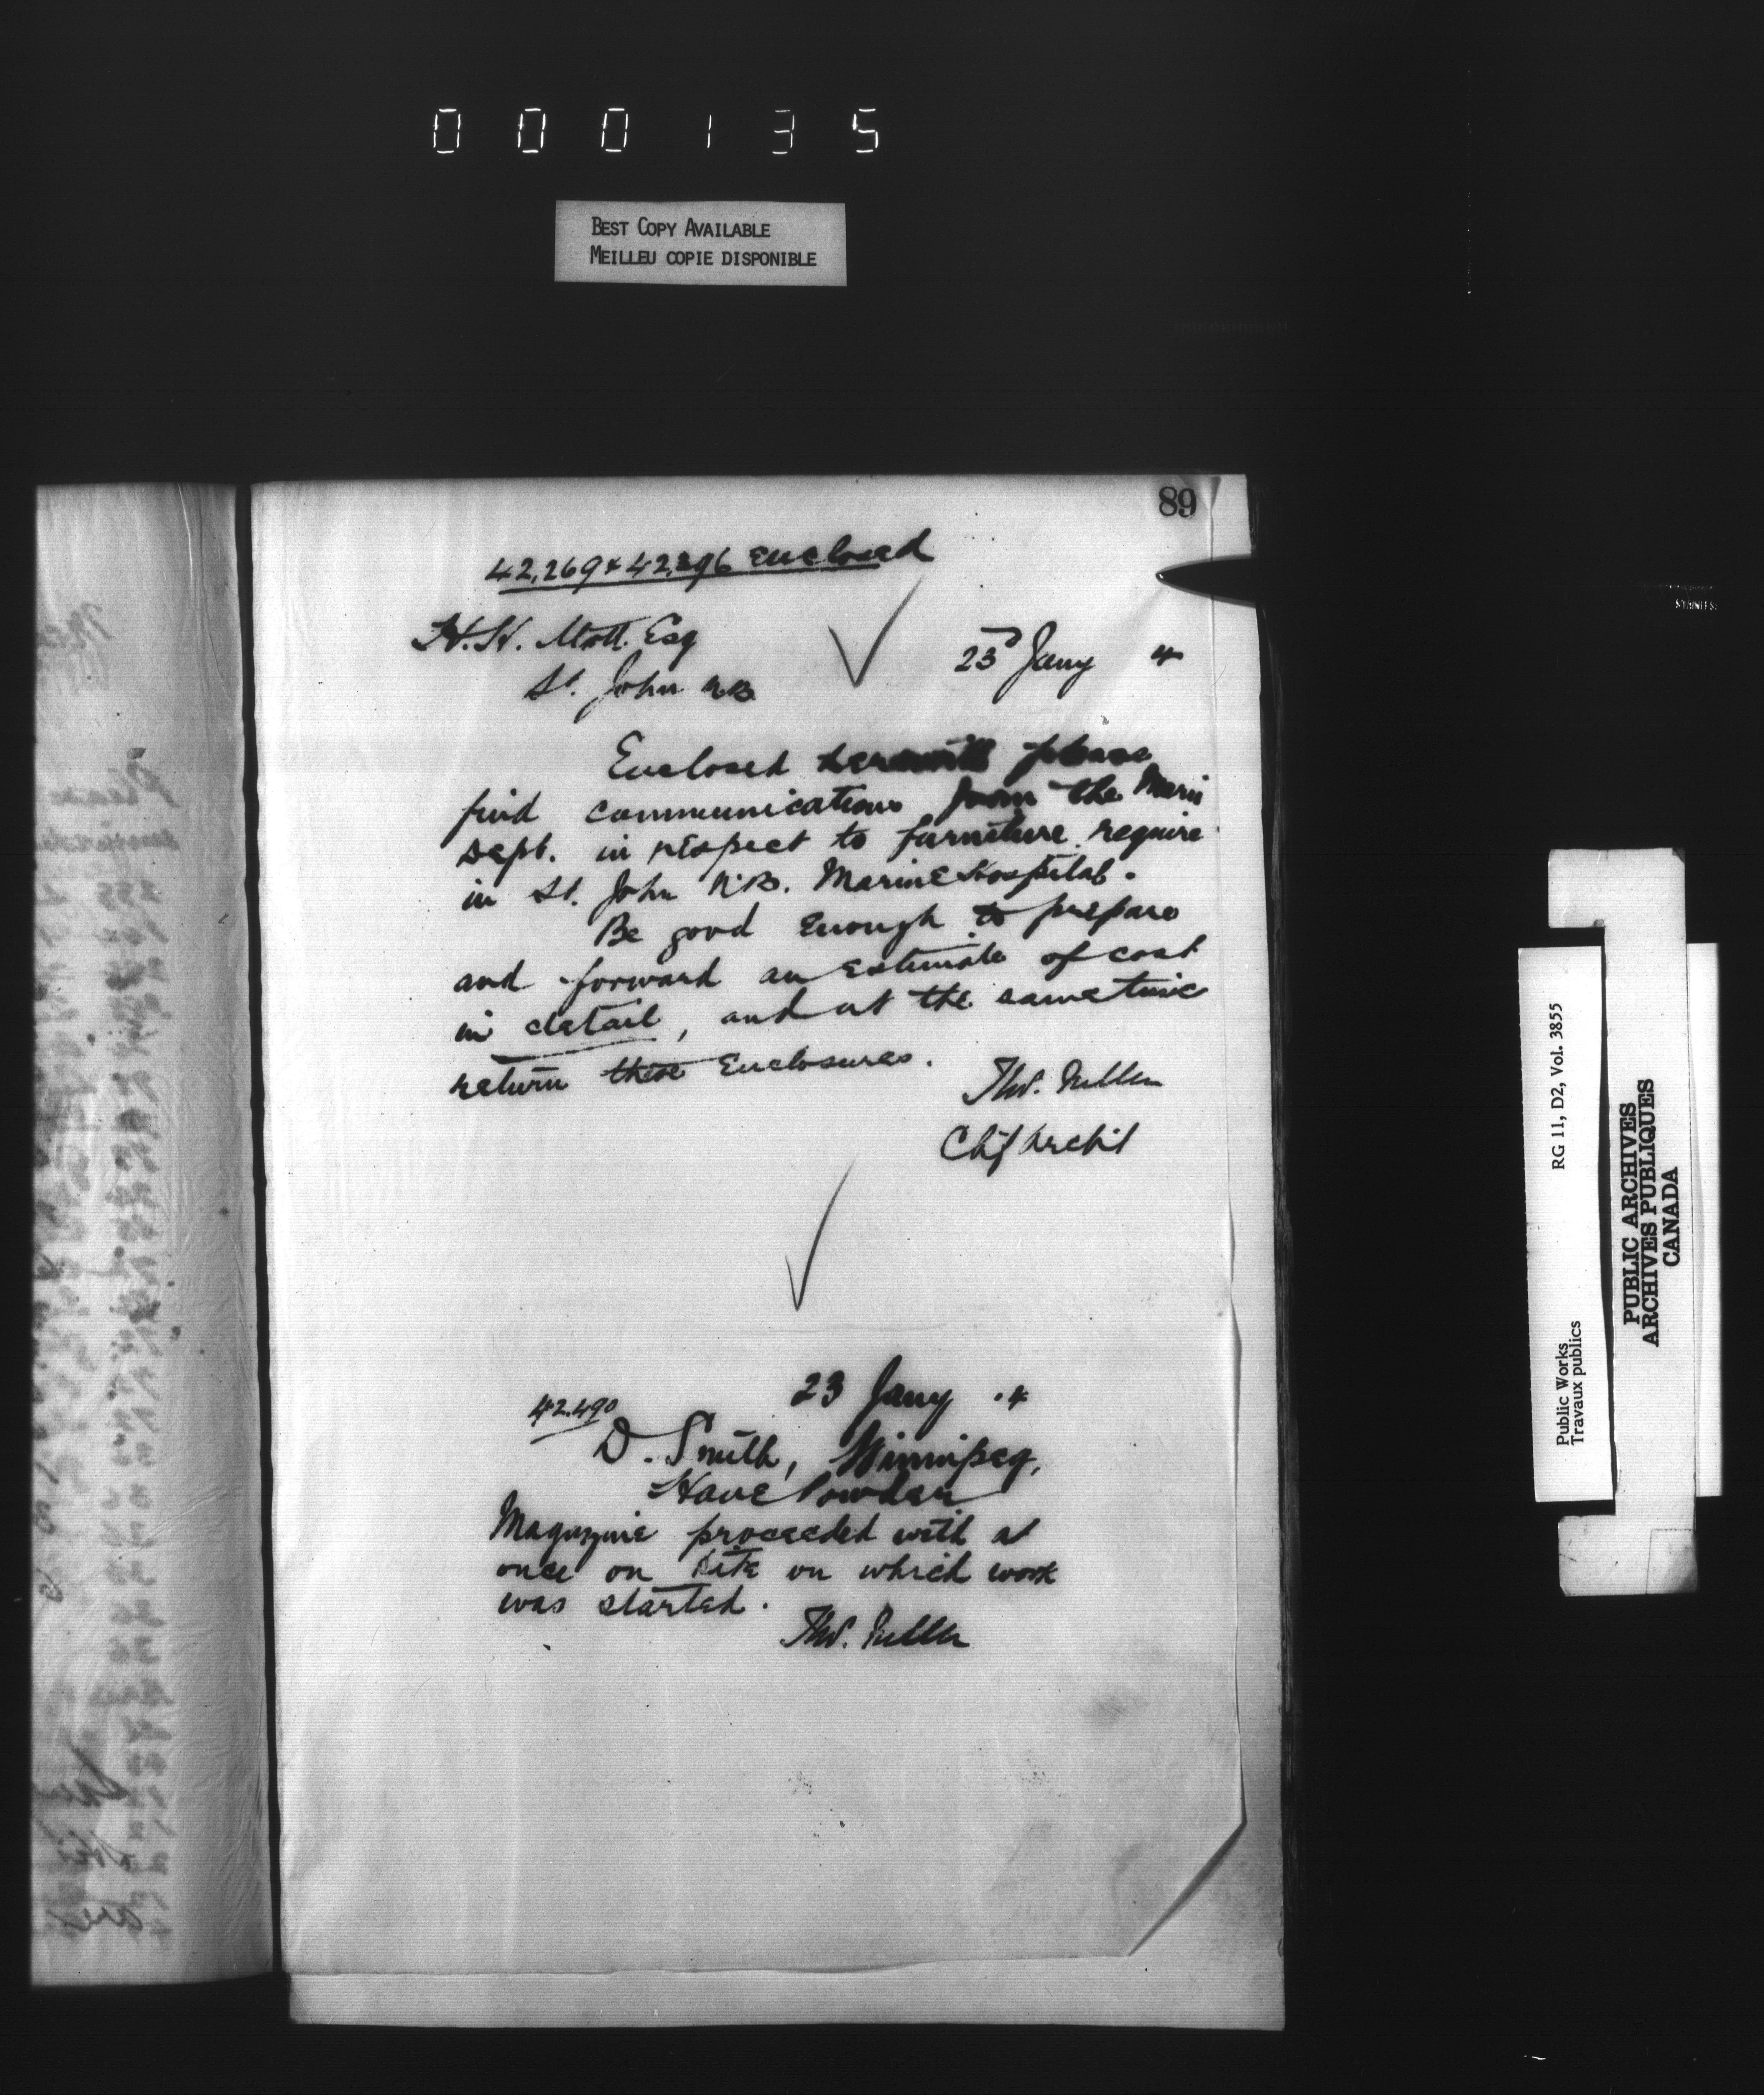 000135
BEST COPY AVAILABLE
MEILLEU COPIE DISPONIBLE
89
42,269 & 42,296 Enclosed
H. H. Mott. Esq
St. John NB
23d Jany 4
Enclosed herewith please
find communications from the Marin
Dept. in respect to furniture require
in St. John N.B. Marine Hospital.
Be good enough to prepare
and forward an Estimate of cost
in detail, and at the same time
return these Enclosures.
Thos. Fuller
Chf Archit
23 Jany . 4
42.490
D. Smith, Winnipeg,
Have Powder
Magazine proceeded with at
once on site on which work
was started.
Thos. Fuller
Public Works
Travaux publics
RG 11, D2, Vol. 3855
PUBLIC ARCHIVES
ARCHIVES PUBLIQUES
CANADA